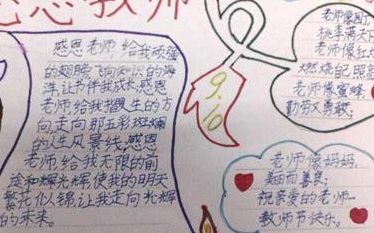 感恩教师
感恩老师,给我顽强
的翅膀飞向知识的海
洋让书伴我成长,感恩
老师给我指人生的方
向,走向那五彩斑斓
的人生风景线,感恩
老师给我无限的前
途和辉光辉使我的明天
繁花似锦让我走向光辉
的未来。
9.10
老师像园丁,
桃李满天下
老师像红烛
燃烧自己照亮
老师像蜜蜂
勤劳又勇敢;
老师像妈妈,
美丽而善良;
祝亲爱的老师一
教师节快乐。